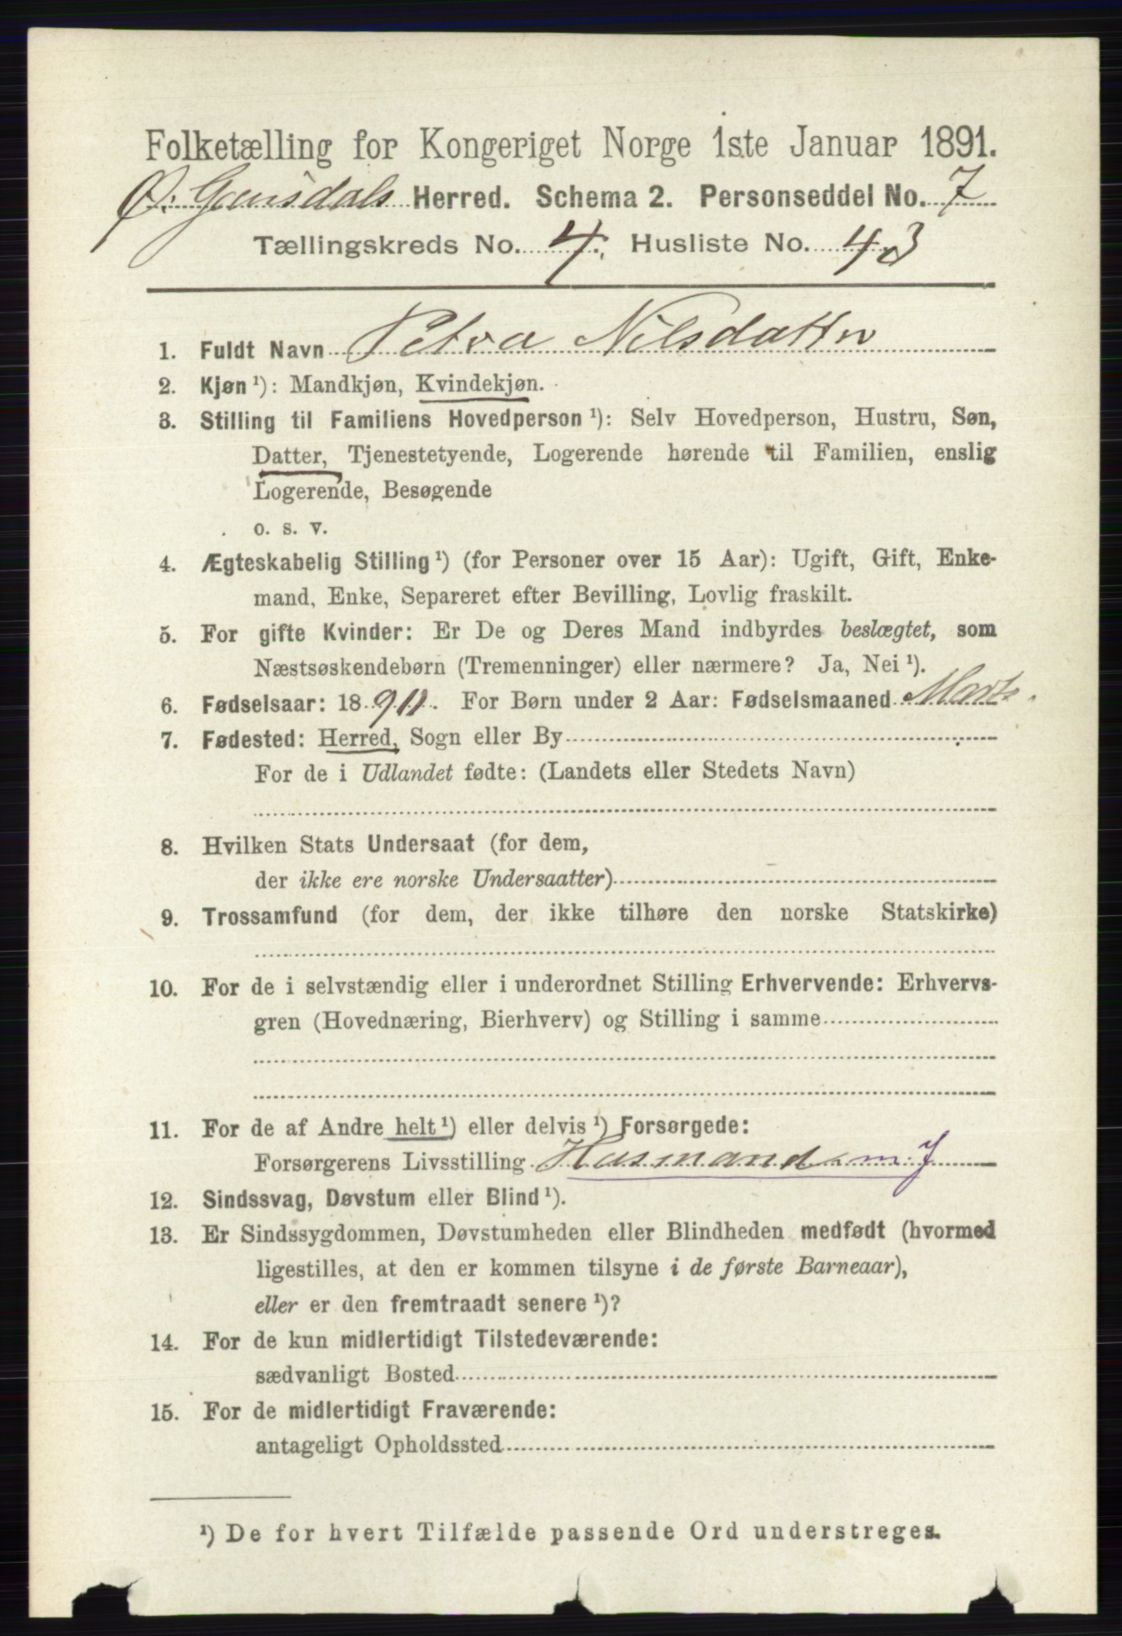 Folketælling for Kongeriget Norge 1ste Januar 1891.
Ø: Gausdals Herred. Schema 2. Personseddel No. 7
Tællingskreds No. 4. Husliste No. 43
1. Fuldt Navn Petra Nilsdatter
2. Kjøn ¹): Mandkjøn, Kvindekjøn.
3. Stilling til Familiens Hovedperson ¹): Selv Hovedperson, Hustru, Søn,
Datter, Tjenestetyende, Logerende hørende til Familien, enslig
Logerende, Besøgende
o. s. v.
4. Ægteskabelig Stilling ¹) (for Personer over 15 Aar): Ugift, Gift, Enke-
mand, Enke, Separeret efter Bevilling, Lovlig fraskilt.
5. For gifte Kvinder: Er De og Deres Mand indbyrdes beslægtet, som
Næstsøskendebørn (Tremenninger) eller nærmere? Ja, Nei ¹).
6. Fødselsaar: 18 90. For Børn under 2 Aar: Fødselsmaaned Marts.
7. Fødested: Herred, Sogn eller By
For de i Udlandet fødte: (Landets eller Stedets Navn)
8. Hvilken Stats Undersaat (for dem,
der ikke ere norske Undersaatter)
9. Trossamfund (for dem, der ikke tilhøre den norske Statskirke)
10. For de i selvstændig eller i underordnet Stilling Erhvervende: Erhvervs-
gren (Hovednæring, Bierhverv) og Stilling i samme
11. For de af Andre helt ¹) eller delvis ¹) Forsørgede:
Forsørgerens Livsstilling Husmand m. J
12. Sindssvag, Døvstum eller Blind ¹).
13. Er Sindssygdommen, Døvstumheden eller Blindheden medfødt (hvormed
ligestilles, at den er kommen tilsyne i de første Barneaar),
eller er den fremtraadt senere ¹)?
14. For de kun midlertidigt Tilstedeværende:
sædvanligt Bosted
15. For de midlertidigt Fraværende:
antageligt Opholdssted
¹) De for hvert Tilfælde passende Ord understreges.